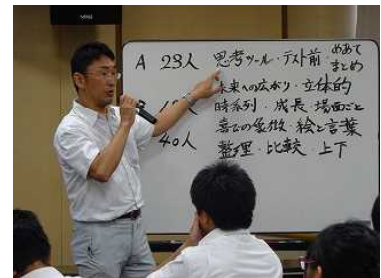 A 23人 思考ツール・テスト前 めあて
まとめ
未来への広がり・立体的
時系列・成長・場面ごと
喜びの象徴・絵と言葉
40人 整理・比較・上下